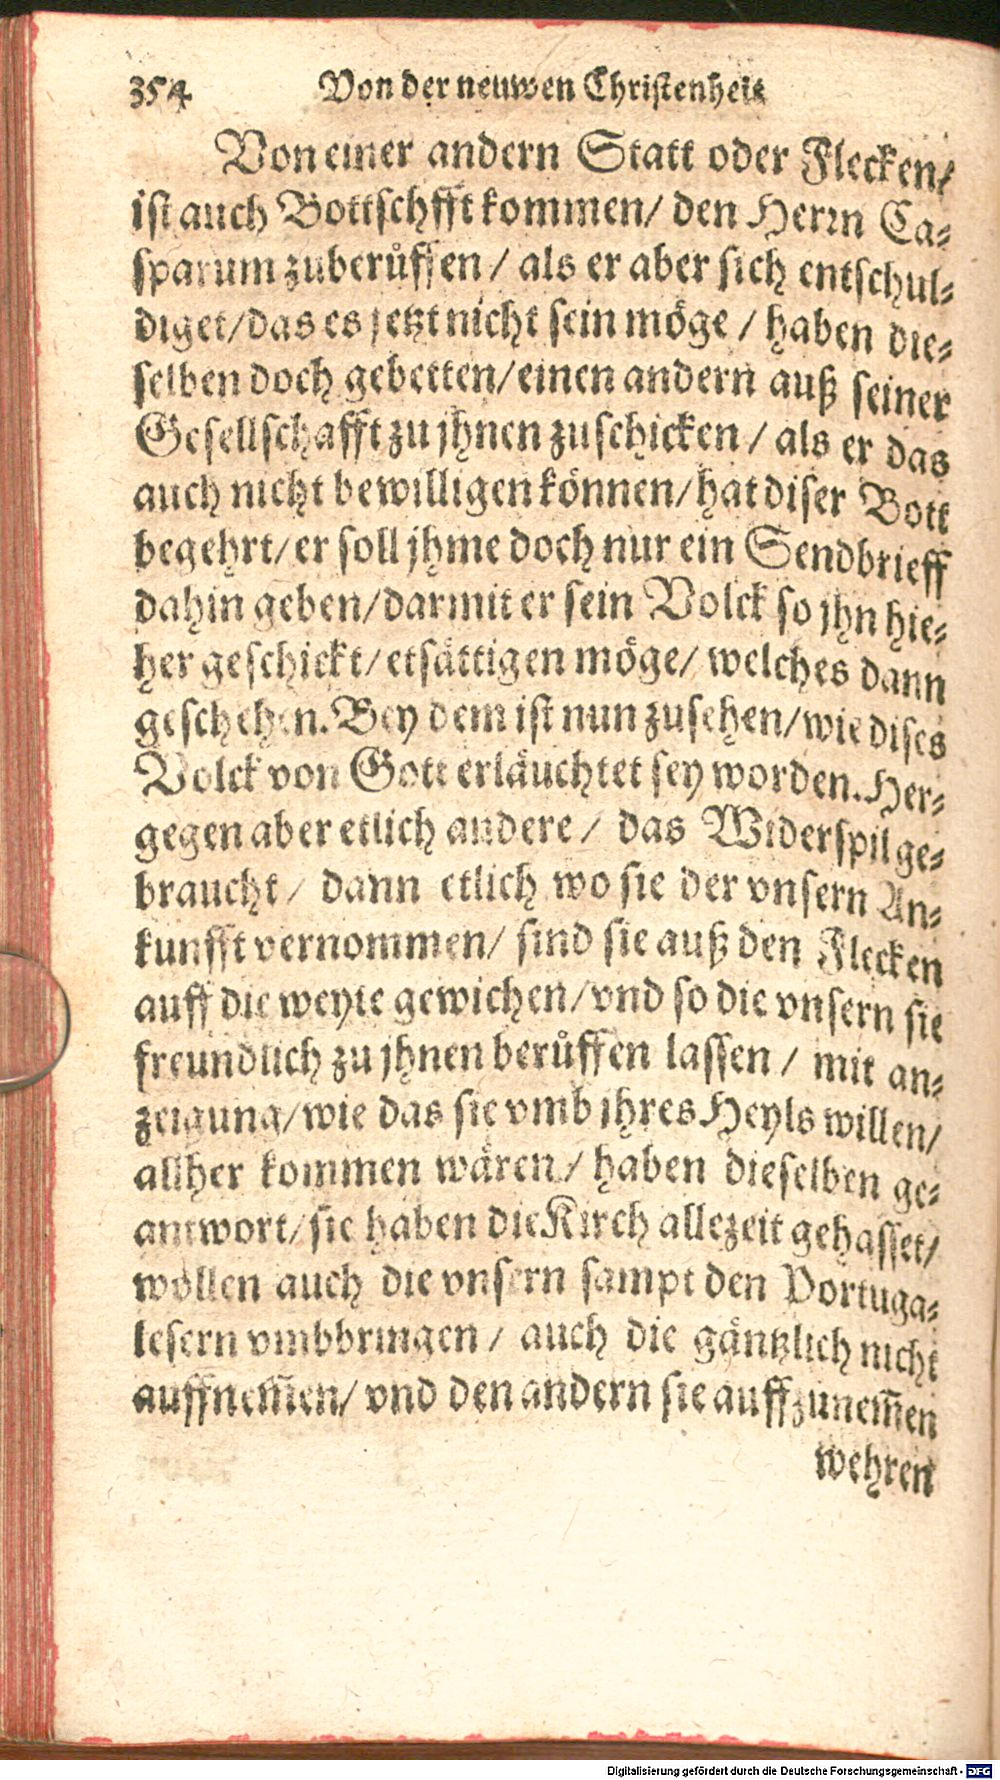 354 Von der neuwen Christenheit
Von einer andern Statt oder Flecken/
ist auch Bottschfft kommen/ den Herrn Ca-
sparum zuberůffen / als er aber sich entschul-
diget/das es jetzt nicht sein möge / haben die-
selben doch gebetten/einen andern auß seiner
Gesellschafft zu jhnen zuschicken / als er das
auch nicht bewilligen können/hat diser Bott
begehrt/er soll jhme doch nur ein Sendbrieff
dahin geben/darmit er sein Volck so jhn hie-
her geschickt/etsättigen möge/ welches dann
geschehen. Bey dem ist nun zusehen/wie dises
Volck von Gott erläuchtet sey worden. Her-
gegen aber etlich andere / das Widerspil ge-
braucht / dann etlich wo sie der vnsern An-
kunfft vernommen/ sind sie auß den Flecken
auff die weyte gewichen/vnd so die vnsern sie
freundlich zu jhnen berůffen lassen / mit an-
zeigung/wie das sie vmb jhres Heyls willen/
allher kommen wären / haben dieselben ge-
antwort/sie haben die Kirch allezeit gehasset/
wöllen auch die vnsern sampt den Portuga-
lesern vmbbringen / auch die gäntzlich nicht
auffnem̃en/ vnd den andern sie auffzunem̃en
wehren
Digitalisierung gefördert durch die Deutsche Forschungsgemeinschaft - DFG